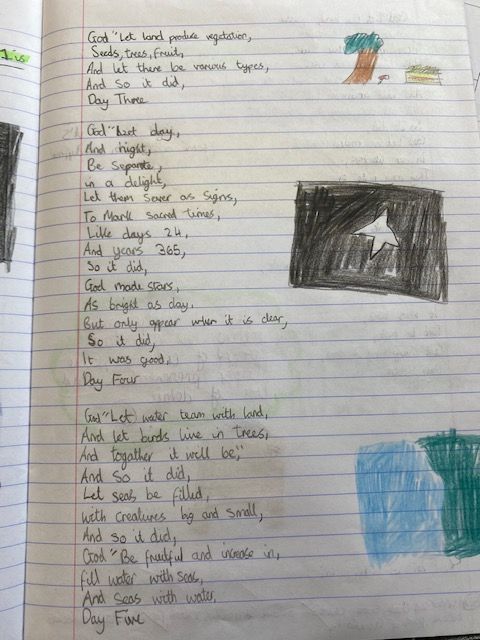 God "Let land produce vegetation,
Seeds, trees, fruit,
And let there be various types,
And so it did,
Day Three
God "Let day,
And night,
Be Separate,
in a delight,
Let them Sever as Signs,
To Mark sacred times,
Like days 24,
And years 365,
So it did,
God made stars,
As bright as day,
But only appear when it is clear,
So it did,
It was good,
Day Four
God "Let water team with land,
And let birds live in trees,
And togather it will be,"
And so it did,
Let seas be filled,
with creatures big and small,
And so it did,
God "Be fruitful and increase in,
fill water with seas,
And seas with water,
Day Five